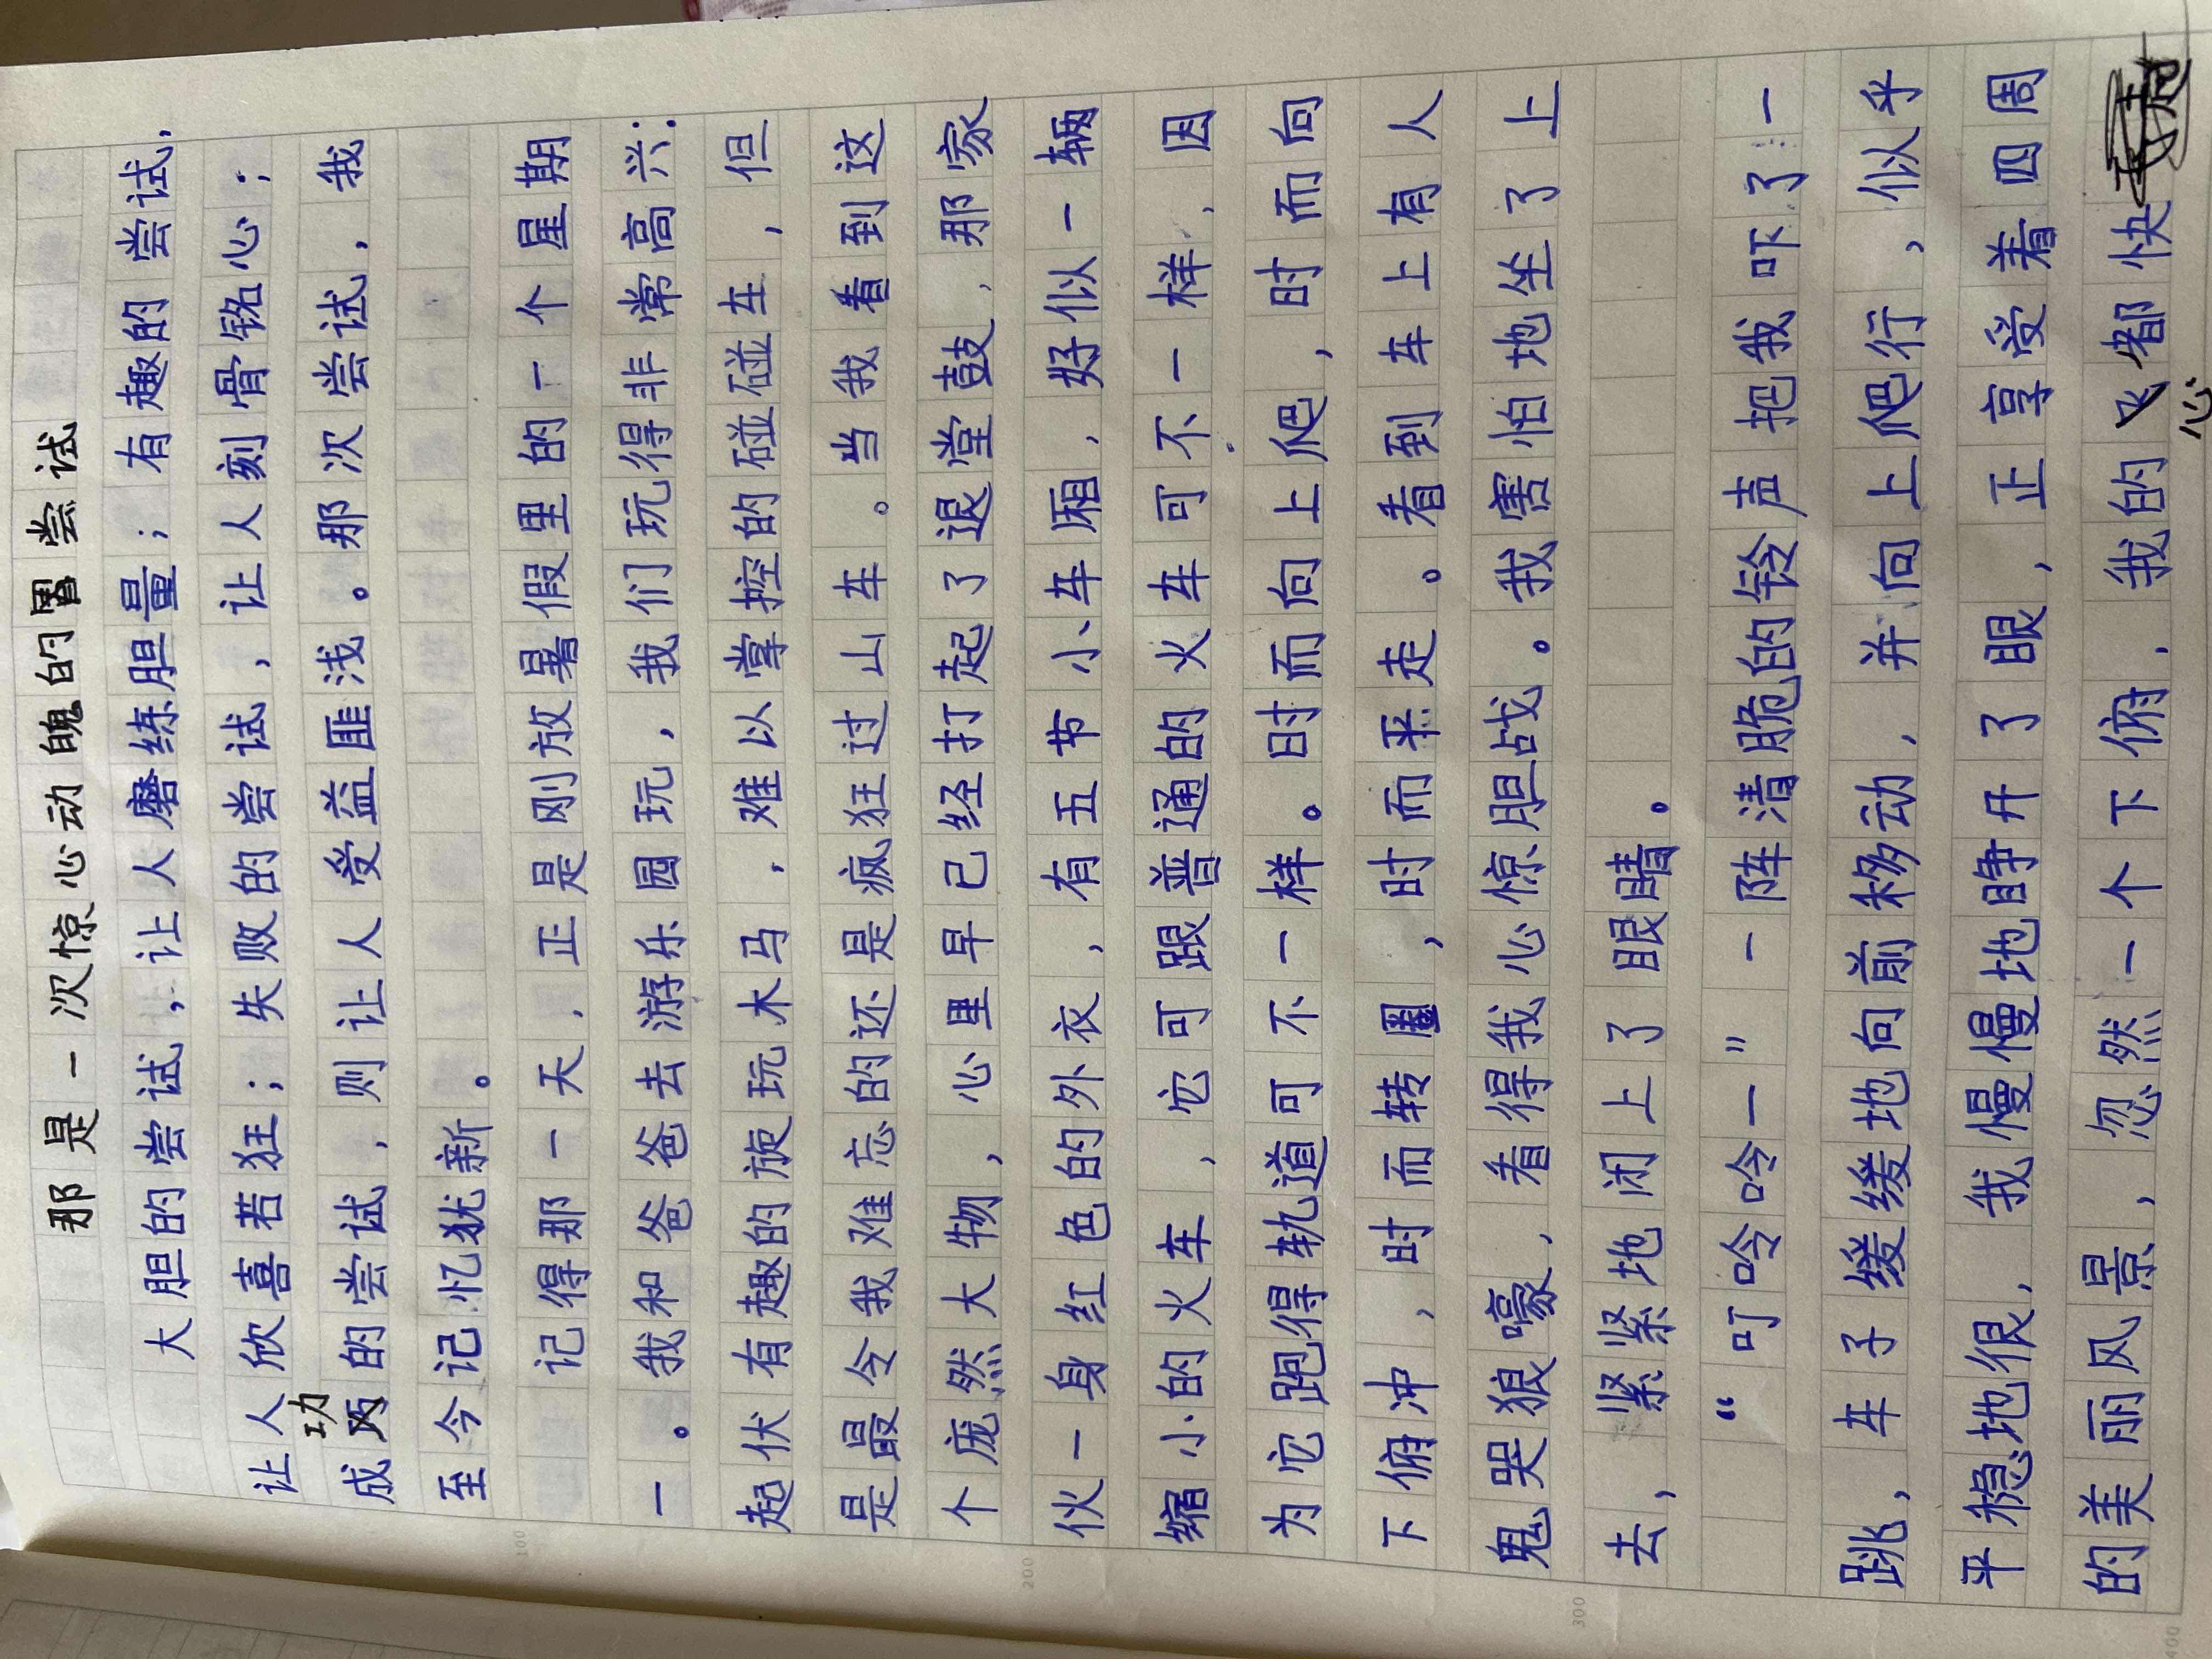 那是一次惊心动魄的尝试
大胆的尝试，让人磨练胆量；有趣的尝试，
让人欣喜若狂；失败的尝试，让人刻骨铭心；
成功的尝试，则让人受益匪浅。那次尝试，我
至今记忆犹新。
记得那一天，正是刚放暑假里的一个星期
一。我和爸爸去游乐园玩，我们玩得非常高兴：
起伏有趣的旋玩木马，难以掌控的碰碰车，但
是最令我难忘的还是疯狂过山车。当我看到这
个庞然大物，心里早已经打起了退堂鼓，那家
伙一身红色的外衣，有五节小车厢，好似一辆
缩小的火车，它可跟普通的火车可不一样，因
为它跑得轨道可不一样。时而向上爬，时而向
下俯冲，时而转圈，时而平走。看到车上有人
鬼哭狼嚎，看得我心惊胆战。我害怕地坐了上
去，紧紧地闭上了眼睛。
“叮呤呤一”一阵清脆的铃声把我吓了一
跳，车子缓缓地向前移动，并向上爬行，似乎
平稳地很，我慢慢地睁开了眼，正享受着四周
的美丽风景，忽然一个下俯，我的心都快
100
200
300
400